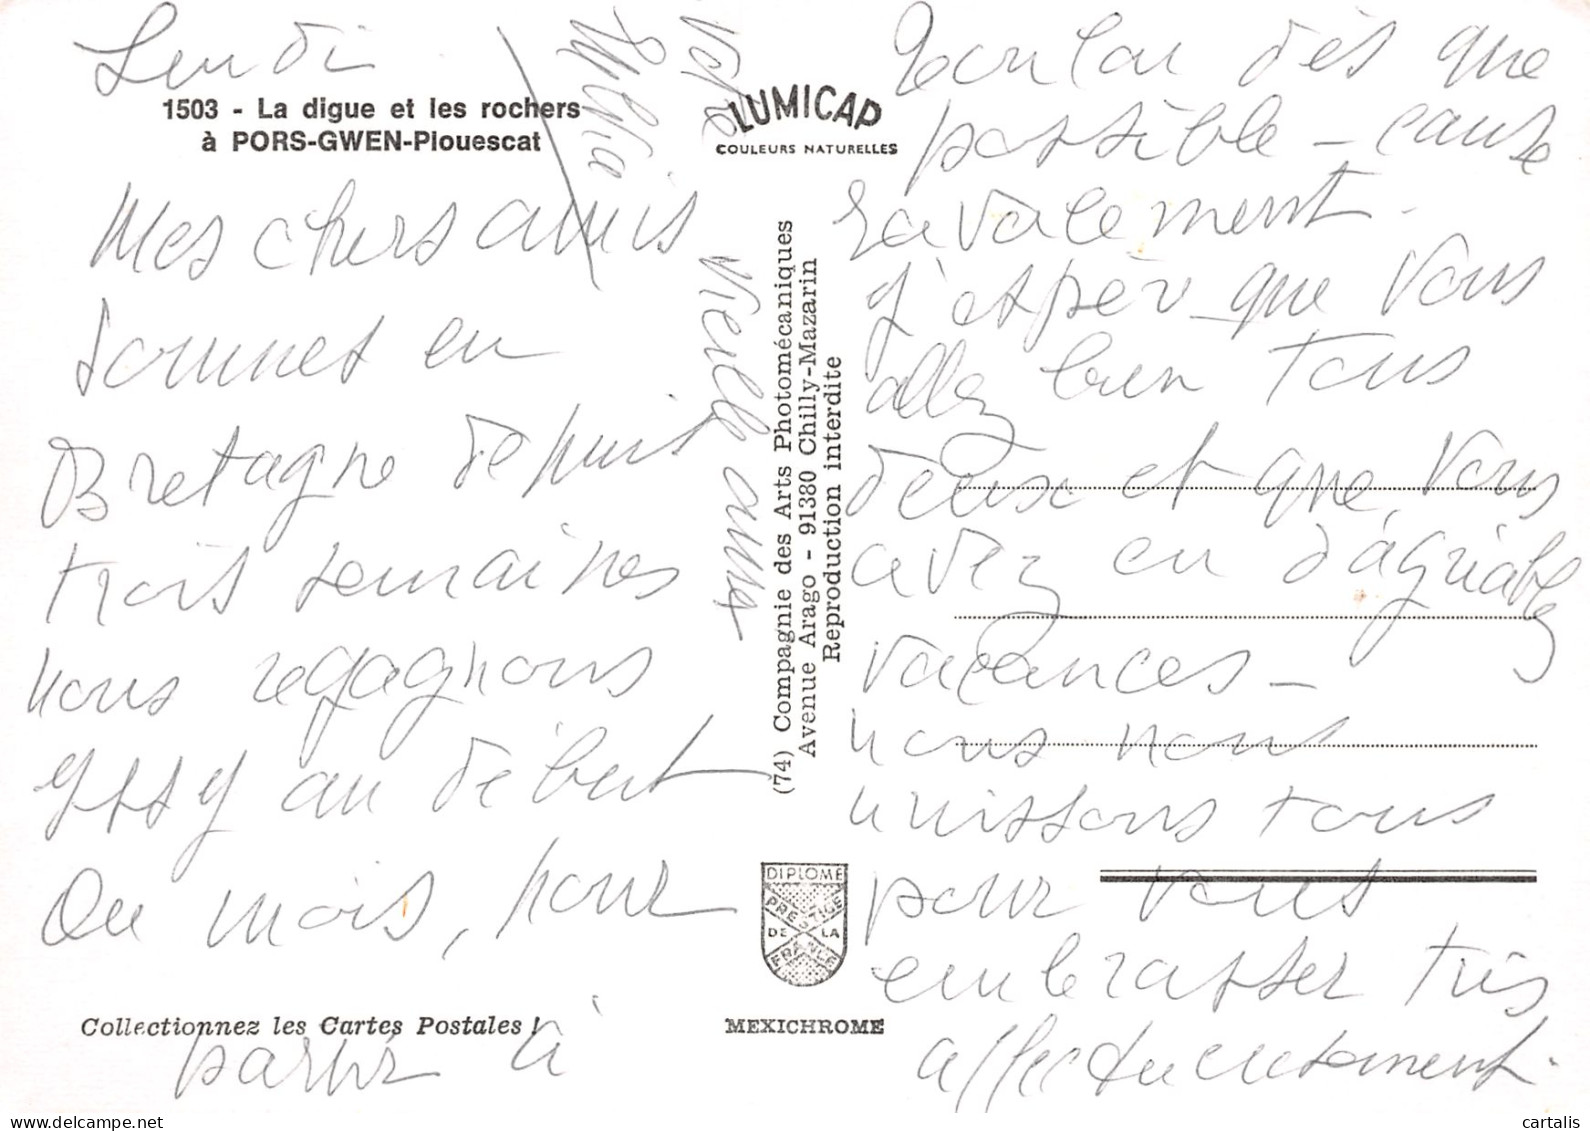 Lundi
1503 - La digue et les rochers
à PORS-GWEN-Plouescat
Mes chers amis
sommes en
Bretagne depuis
trois semaines
nous regagnons
Issy au début
Ou mois, pour
partir à
Collectionnez les Cartes Postales !
LUMICAP
COULEURS NATURELLES
(74) Compagnie des Arts Photomécaniques
Avenue Arago - 91380 Chilly-Mazarin
Reproduction interdite
DIPLOME
PRESTIGE
DE LA
FRANCE
MEXICHROME
dès que
possible - cause
ravalement -
J'espère que vous
allez bien tous
deux et que vous
avez eu d'agréables
vacances -
nous nous
unissons tous
pour vous
embrasser très
affectueusement.
votre
vieille amie